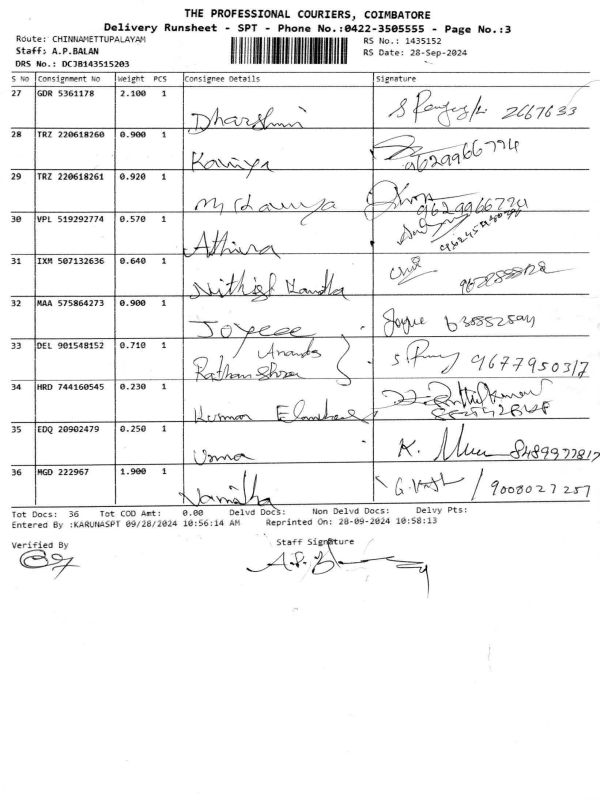 THE PROFESSIONAL COURIERS, COIMBATORE
Delivery Runsheet - SPT - Phone No.:0422-3505555 - Page No.:3
Route: CHINNAMETTUPALAYAM
RS No.: 1435152
Staff: A.P.BALAN
RS Date: 28-Sep-2024
DRS No.: DCJB143515203
S No Consignment No Weight PCS Consignee Details Signature
27 GDR 5361178 2.100 1
Dharshini 2667633
28 TRZ 220618260 0.900 1
Kaviya 9629966774
29 TRZ 220618261 0.920 1
9629966774
30 VPL 519292774 0.570 1
Athira
31 IXM 507132636 0.640 1
Nithish
32 MAA 575864273 0.900 1
Joycee Joyce
33 DEL 901548152 0.710 1
Ananda
9677950317
34 HRD 744160545 0.230 1
Kumar
35 EDQ 20902479 0.250 1
Uma K. 8489977817
36 MGD 222967 1.900 1
Namitha G. / 9008027257
Tot Docs: 36 Tot COD Amt: 0.00 Delvd Docs: Non Delvd Docs: Delvy Pts:
Entered By :KARUNASPT 09/28/2024 10:56:14 AM Reprinted On: 28-09-2024 10:58:13
Verified By Staff Signature